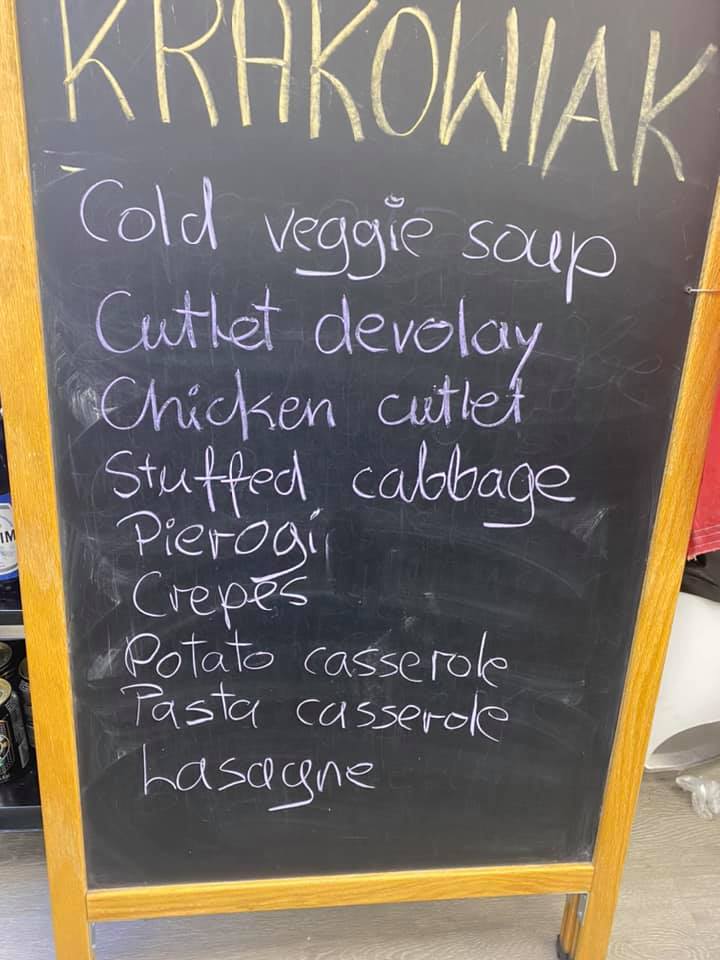 KRAKOWIAK
Cold veggie soup
Cutlet devolay
Chicken cutlet
Stuffed cabbage
Pierogi
Crepes
Potato casserole
Pasta casserole
Lasagne
IM